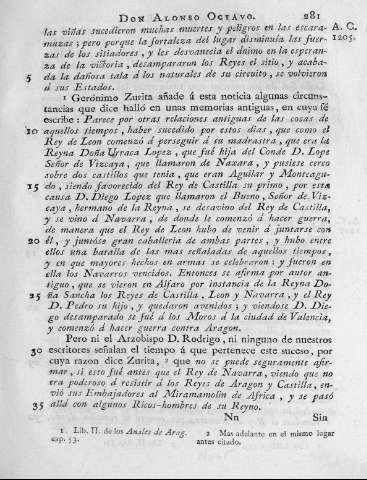 DON ALONSO OCTAVO. 281
las viñas sucedieron muchas muertes y peligros en las escara- A. C.
muzas; pero porque la fortaleza del lugar disminuía las fuer- 1205.
zas de los sitiadores, y les desvanecia el ánimo en la esperan-
za de la victoria, desampararon los Reyes el sitio, y acaba-
5 da la dañosa tala á los naturales de su circuito, se volvieron
á sus Estados.
1 Gerónimo Zurita añade á esta noticia algunas circuns-
tancias que dice halló en unas memorias antiguas, en cuya fé
escribe: Parece por otras relaciones antiguas de las cosas de
10 aquellos tiempos, haber sucedido por estos dias, que como el
Rey de Leon comenzó á perseguir á su madrastra, que era la
Reyna Doña Urraca Lopez, que fué hija del Conde D. Lope
Señor de Vizcaya, que llamaron de Naxara, y pusiese cerco
sobre dos castillos que tenia, que eran Aguilar y Monteagu-
15 do, siendo favorecido del Rey de Castilla su primo, por esta
causa D. Diego Lopez que llamaron el Bueno, Señor de Viz-
caya, hermano de la Reyna, se desavino del Rey de Castilla,
y se vino á Navarra, de donde le comenzó á hacer guerra,
de manera que el Rey de Leon hubo de venir á juntarse con
20 él, y juntóse gran caballería de ambas partes, y hubo entre
ellos una batalla de las mas señaladas de aquellos tiempos,
y en que mayores hechos de armas se celebraron: y fueron en
ella los Navarros vencidos. Entonces se afirma por autor an-
tiguo, que se vieron en Alfaro por instancia de la Reyna Do-
25 ña Sancha los Reyes de Castilla, Leon y Navarra, y el Rey
D. Pedro su hijo, y quedaron avenidos; y viendose D. Die-
go desamparado se fué á los Moros á la ciudad de Valencia,
y comenzó á hacer guerra contra Aragon.
Pero ni el Arzobispo D. Rodrigo, ni ninguno de nuestros
30 escritores señalan el tiempo á que pertenece este suceso, por
cuya razon dice Zurita, 2 que no se puede seguramente afir-
mar, si esto fué antes que el Rey de Navarra, viendo que no
era poderoso á resistir á los Reyes de Aragon y Castilla, en-
vió sus Embajadores al Miramamolin de Africa, y se pasó
35 allá con algunos Ricos-hombres de su Reyno.
Nn Sin
1 Lib. II. de los Anales de Arag.
cap. 53.
2 Mas adelante en el mismo lugar
antes citado.